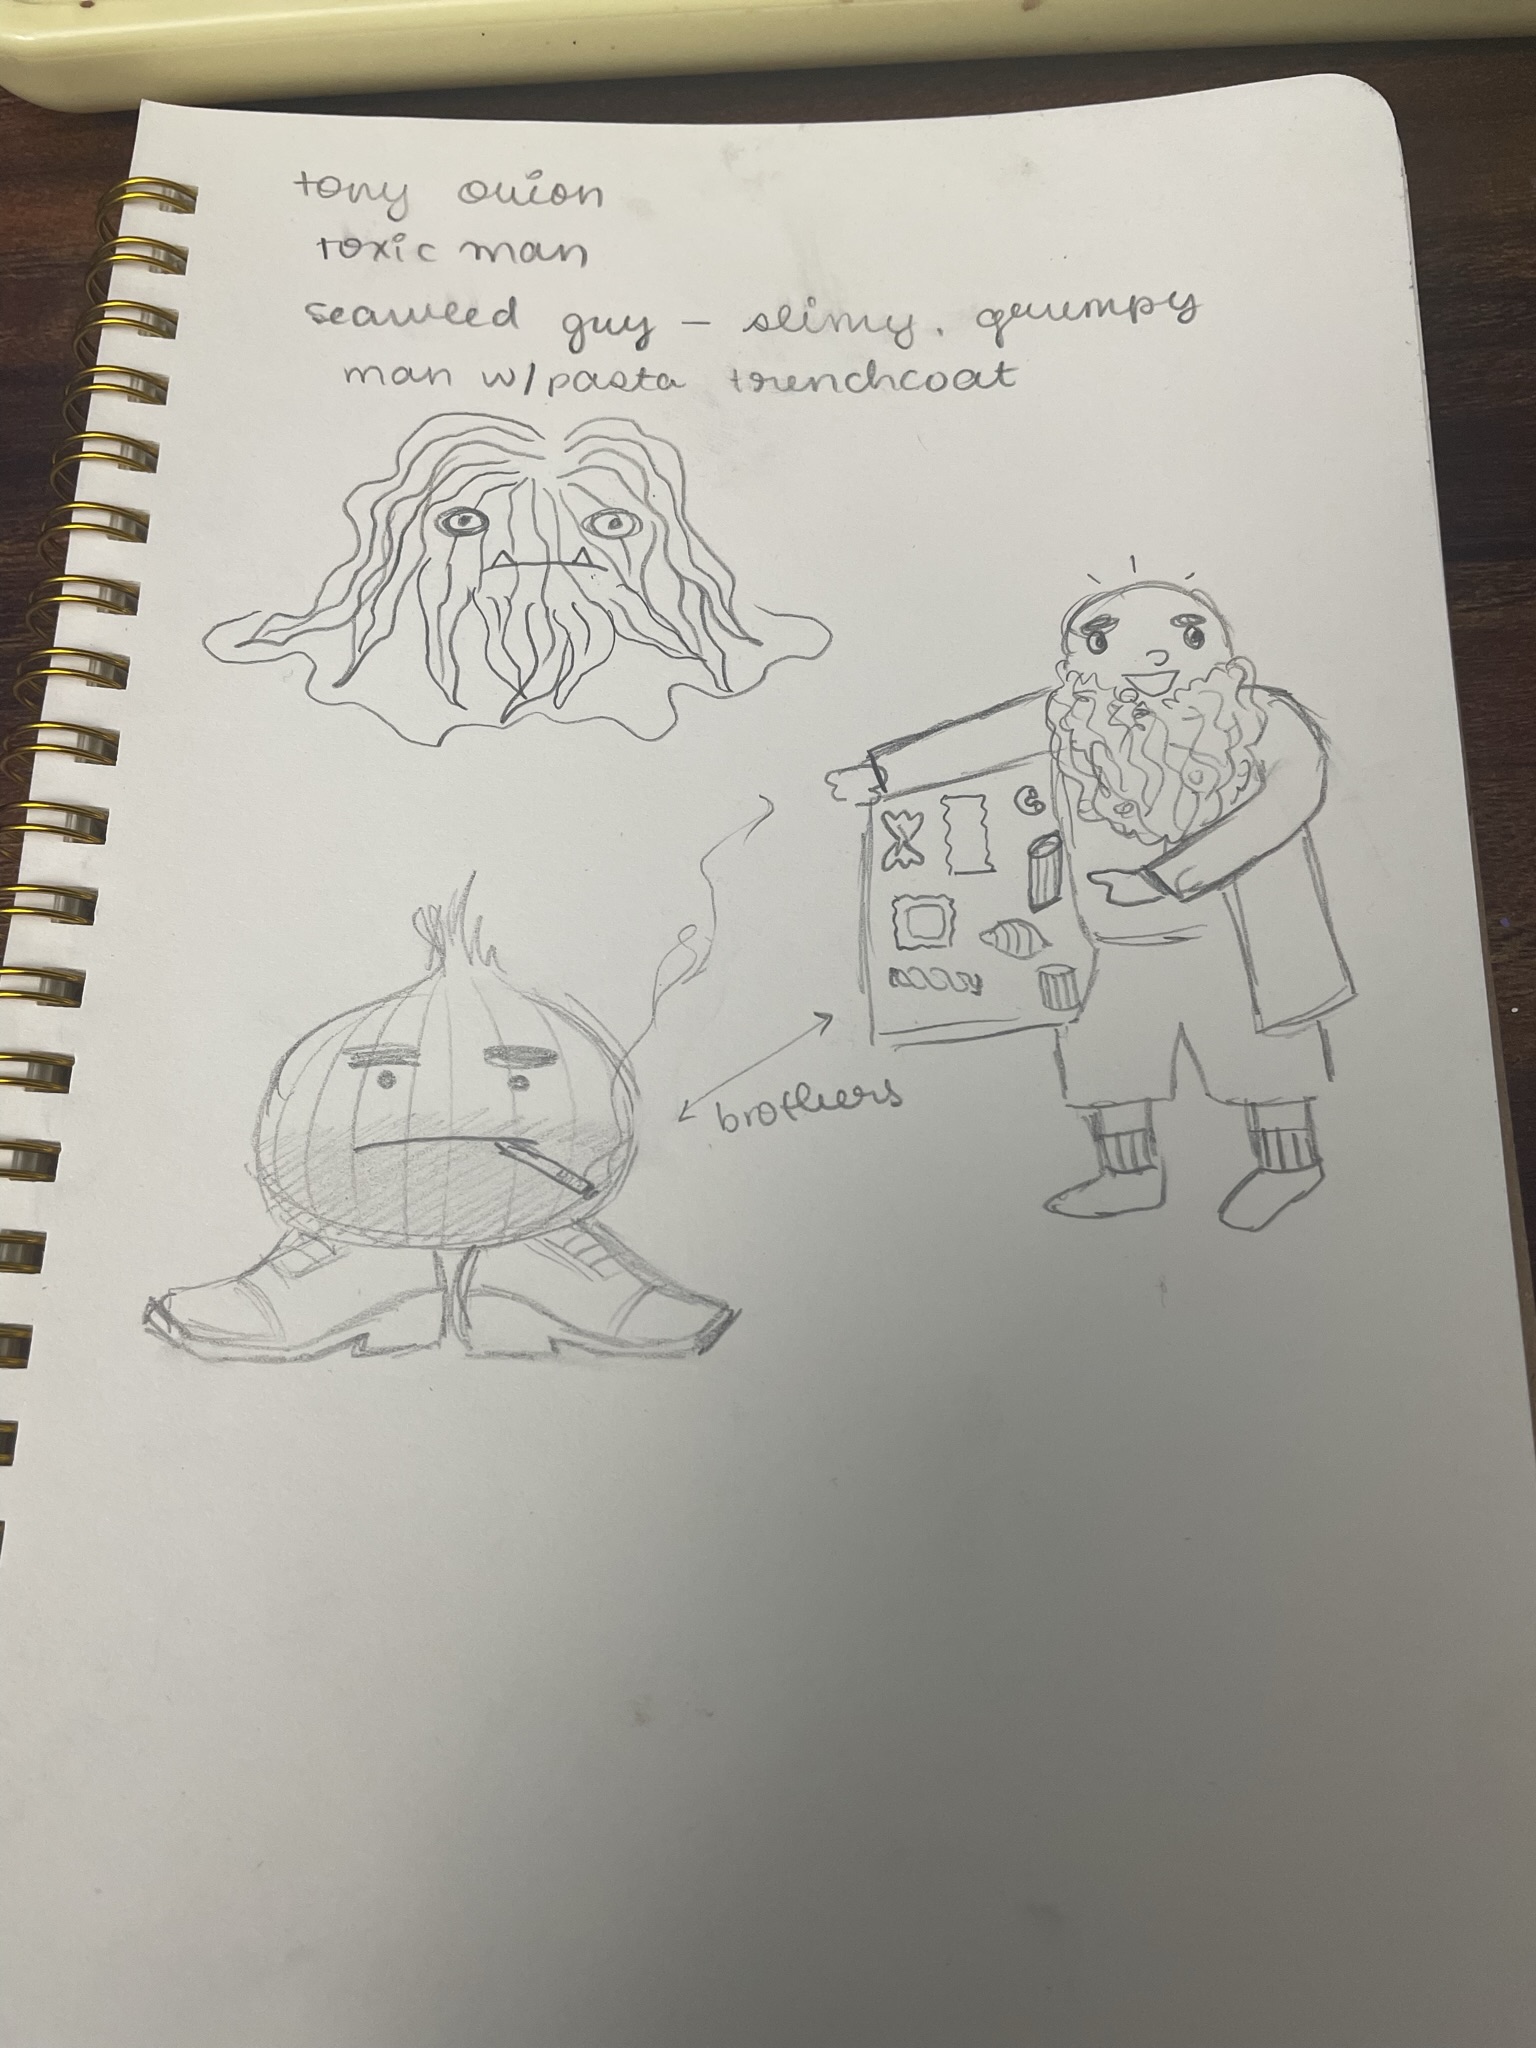 tony onion
toxic man
seaweed guy – slimy, grumpy
man w/pasta trenchcoat
brothers